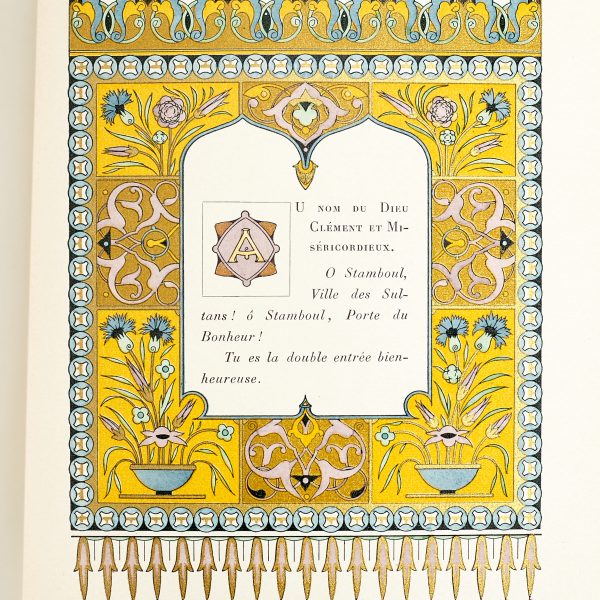 AU NOM DU DIEU
CLÉMENT ET MI-
SÉRICORDIEUX.
O Stamboul,
Ville des Sul-
tans! ô Stamboul, Porte du
Bonheur!
Tu es la double entrée bien-
heureuse.